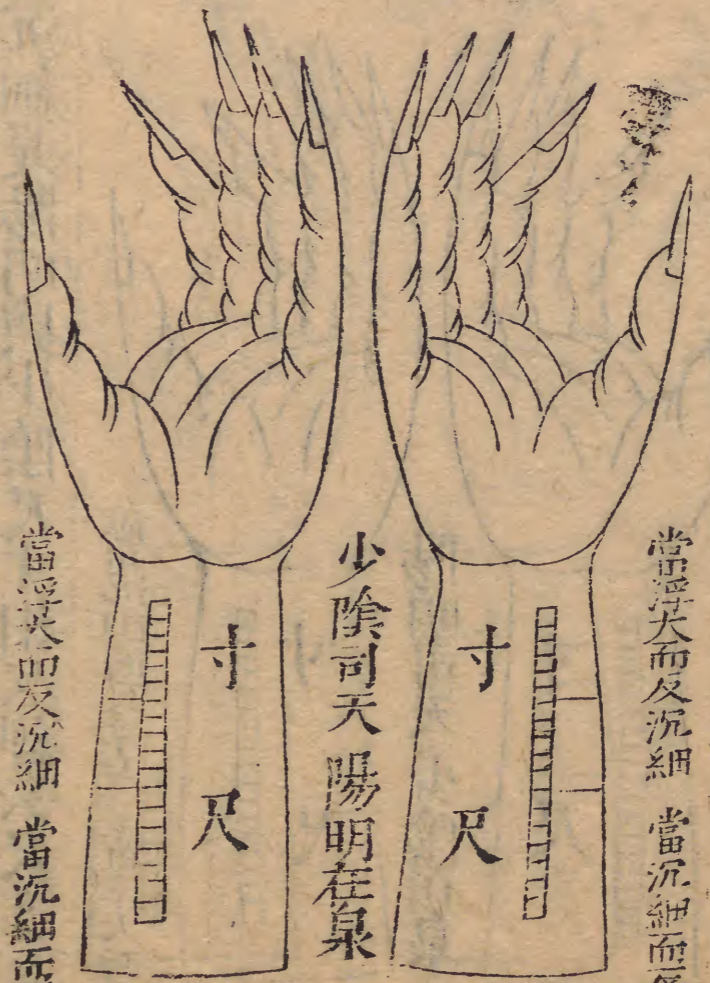 當浮大而反沉細 當沉細而
寸
尺
少陰司天 陽明在泉
寸
尺
當浮大而反沉細 當沉細而